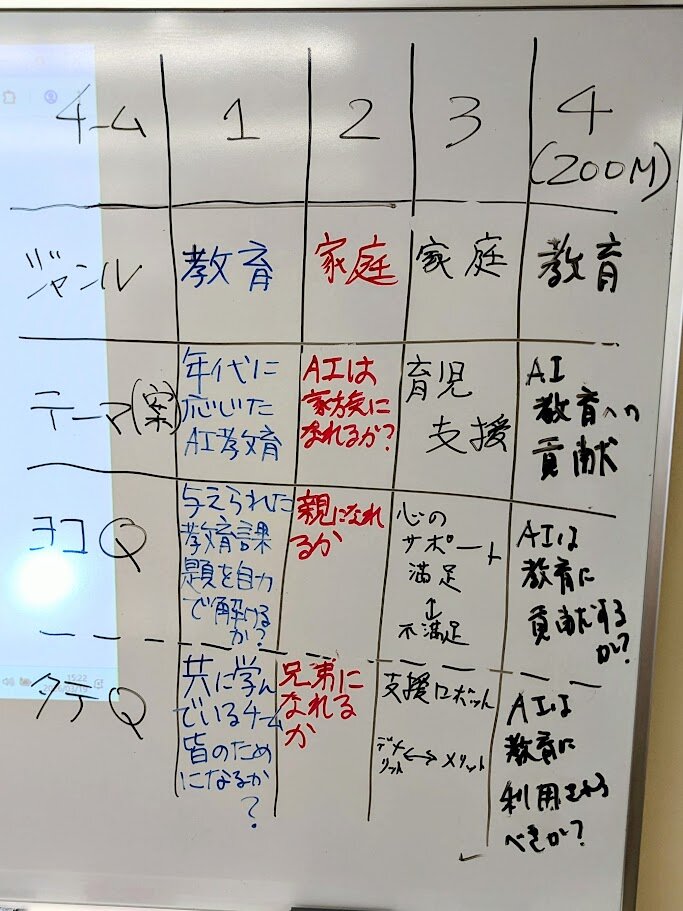 チーム
1
2
3
4
(ZOOM)
ジャンル
教育
家庭
家庭
教育
テーマ(案)
年代に
応じた
AI教育
AIは
家族に
なれるか?
育児
支援
AI
教育への
貢献
ヨコQ
与えられた
教育課
題を自力
で解ける
か?
親になれ
るか
心の
サポート
満足
↕
不満足
AIは
教育に
貢献する
か?
タテQ
共に学ん
でいるチーム
皆のため
になるか
?
兄弟に
なれる
か
支援ロボット
デメ
リット ↔ メリット
AIは
教育に
利用される
べきか?
15:22